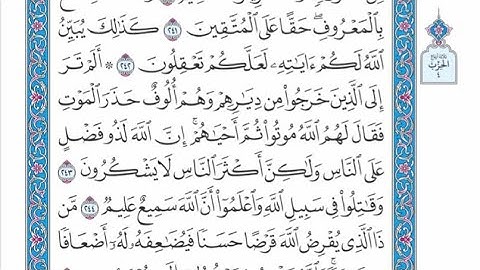 بِٱلْمَعْرُوفِ ۖ حَقًّا عَلَى ٱلْمُتَّقِينَ ٢٤١ كَذَٰلِكَ يُبَيِّنُ
ٱللَّهُ لَكُمْ ءَايَٰتِهِۦ لَعَلَّكُمْ تَعْقِلُونَ ٢٤٢ ۞ أَلَمْ تَرَ
إِلَى ٱلَّذِينَ خَرَجُوا۟ مِن دِيَٰرِهِمْ وَهُمْ أُلُوفٌ حَذَرَ ٱلْمَوْتِ
فَقَالَ لَهُمُ ٱللَّهُ مُوتُوا۟ ثُمَّ أَحْيَٰهُمْ ۚ إِنَّ ٱللَّهَ لَذُو فَضْلٍ
عَلَى ٱلنَّاسِ وَلَٰكِنَّ أَكْثَرَ ٱلنَّاسِ لَا يَشْكُرُونَ ٢٤٣
وَقَٰتِلُوا۟ فِى سَبِيلِ ٱللَّهِ وَٱعْلَمُوٓا۟ أَنَّ ٱللَّهَ سَمِيعٌ عَلِيمٌ ٢٤٤ مَّن
ذَا ٱلَّذِى يُقْرِضُ ٱللَّهَ قَرْضًا حَسَنًا فَيُضَٰعِفَهُۥ لَهُۥٓ أَضْعَافًا
الحزب
٤